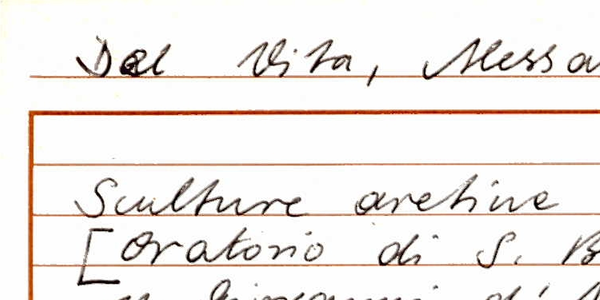 Del Vita, Alessa
Sculture aretine
[Oratorio di S. B
Giovanni di